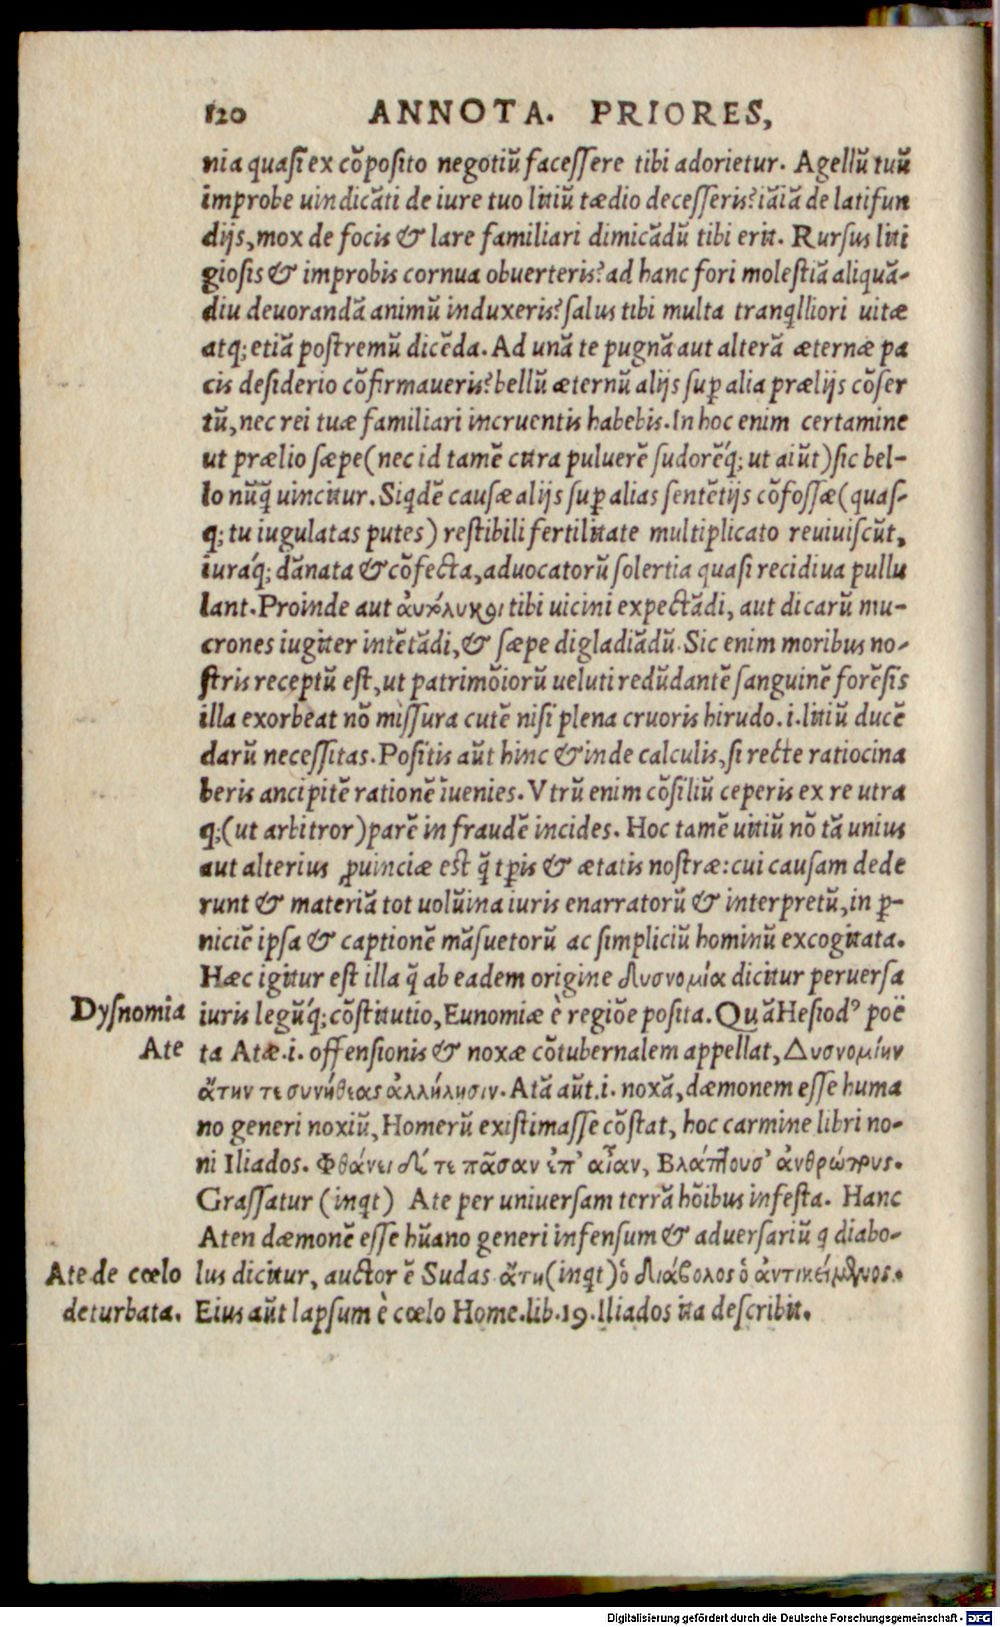 120 ANNOTA. PRIORES,
nia quasi ex cōposito negotiū facessere tibi adorietur. Agellū tuū
improbe uindicāti de iure tuo litiū tædio decesseris? iāiā de latifun
dijs, mox de focis & lare familiari dimicādū tibi erit. Rursus liti
giosis & improbis cornua obuerteris? ad hanc fori molestiā aliquā-
diu deuorandā animū induxeris? salus tibi multa tranq̃lliori uitæ
atq; etiā postremū dicēda. Ad unā te pugnā aut alterā æternæ pa
cis desiderio cōfirmaueris? bellū æternū alijs suꝑ alia prælijs cōser
tū, nec rei tuæ familiari incruentis habebis. In hoc enim certamine
ut prælio sæpe (nec id tamē citra puluerē sudorēq́; ut aiūt) sic bel-
lo nūq̃ uincitur. Siqdē causæ alijs suꝑ alias sentētijs cōfossæ (quas-
q; tu iugulatas putes) restibili fertilitate multiplicato reuiuiscūt,
iuraq́; dānata & cōfecta, aduocatorū solertia quasi recidiua pullu
lant. Proinde aut tibi uicini expectādi, aut dicarū mu-
crones iugiter intētādi, & sæpe digladiādū. Sic enim moribus no-
stris receptū est, ut patrimōiorū ueluti redūdantē sanguinē forēsis
illa exorbeat nō missura cutē nisi plena cruoris hirudo .i. litiū ducē
darū necessitas. Positis aūt hinc & inde calculis, si recte ratiocina
beris ancipitē rationē īuenies. Vtrū enim cōsiliū ceperis ex re utra
q; (ut arbitror) parē in fraudē incides. Hoc tamē uitiū nō tā unius
aut alterius ꝓuinciæ est q̃ tꝑis & ætatis nostræ: cui causam dede
runt & materiā tot uolūina iuris enarratorū & interpretū, in ꝑ-
niciē ipsa & captionē māsuetorū ac simpliciū hominū excogitata.
Hæc igitur est illa q̃ ab eadem origine δυσνομία dicitur peruersa
Dysnomia iuris legūq́; cōstitutio, Eunomiæ è regiōe posita. Quā Hesiodꝰ poë
Ate ta Atæ .i. offensionis & noxæ cōtubernalem appellat, Δυσνομίην
ἄτην τε συνήθεας ἀλλήλῃσιν. Atā aūt .i. noxā, dæmonem esse huma
no generi noxiū, Homerū existimasse cōstat, hoc carmine libri no-
ni Iliados. Φθάνει δέ τε πᾶσαν ἐπ' αἶαν, Βλάπτουσ' ἀνθρώπους.
Grassatur (inqt) Ate per uniuersam terrā hōibus infesta. Hanc
Aten dæmonē esse hūano generi infensum & aduersariū q diabo-
Ate de cœlo lus dicitur, auctor ē Sudas ἄτη (inqt) ὁ διάβολος ὁ ἀντικείμενος.
deturbata. Eius aūt lapsum è cœlo Home. lib. 19. Iliados ita describit.
Digitalisierung gefördert durch die Deutsche Forschungsgemeinschaft - DFG